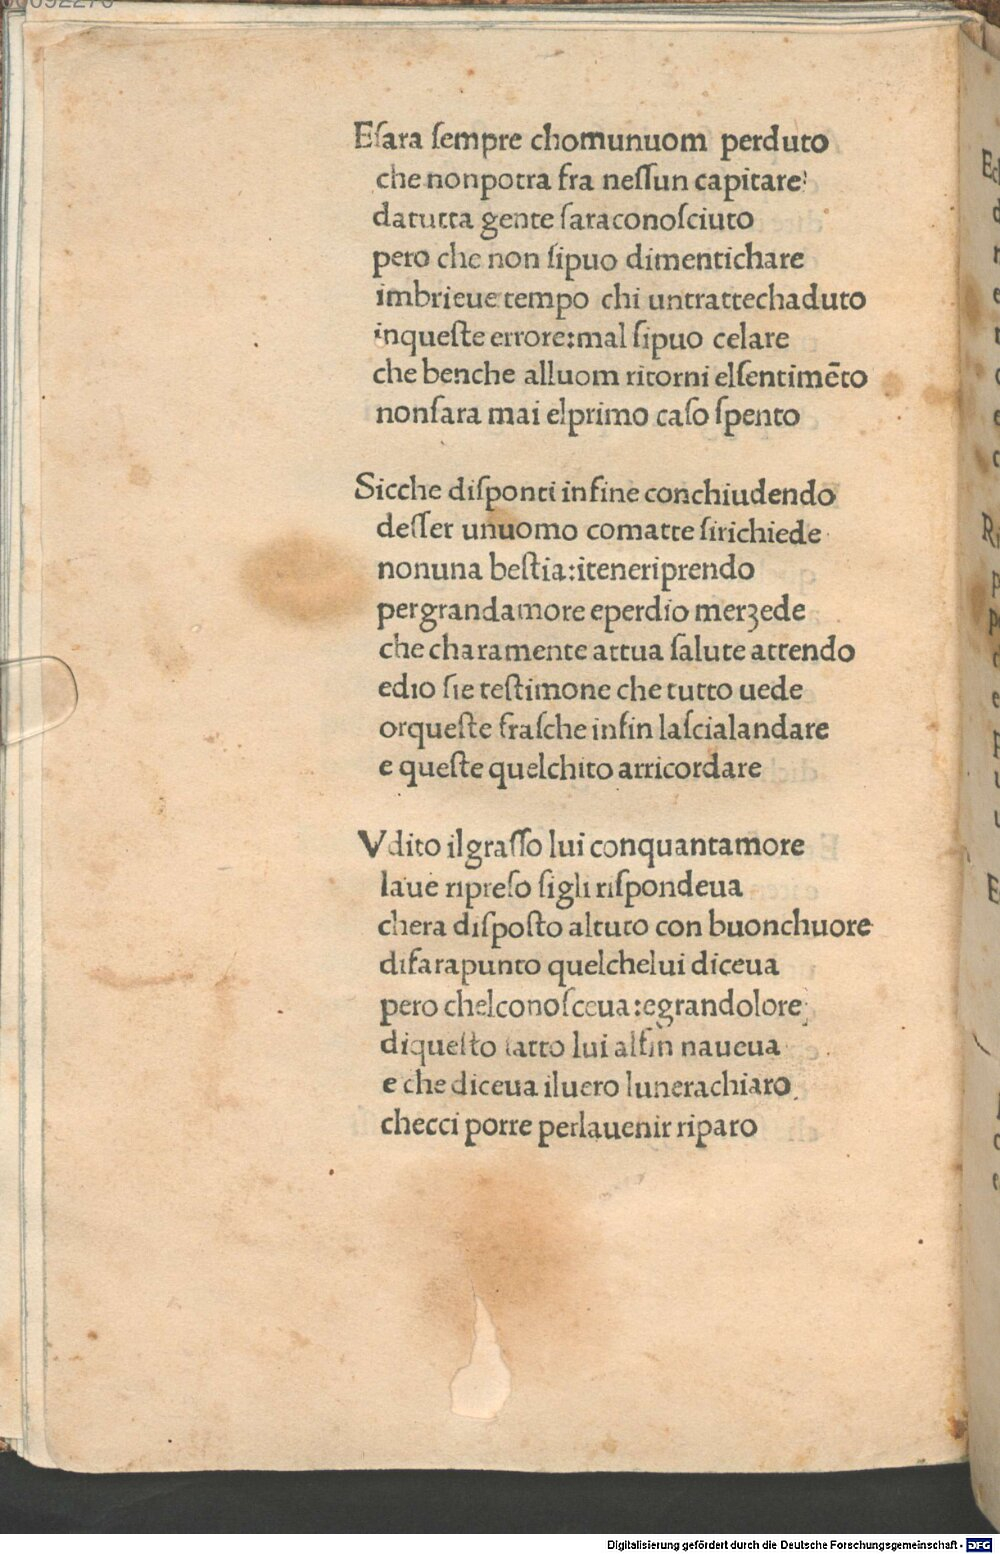 Eſara ſempre chomunuom perduto
che nonpotra fra neſſun capitare
datutta gente ſaraconoſciuto
pero che non ſipuo dimentichare
imbrieue tempo chi untrattechaduto
inqueſte errore:mal ſipuo celare
che benche alluom ritorni elſentimēto
nonſara mai elprimo caſo ſpento
Sicche diſponti infine conchiudendo
deſſer unuomo comatte ſirichiede
nonuna beſtia:iteneriprendo
pergrandamore eperdio merzede
che charamente attua ſalute attendo
edio ſie teſtimone che tutto uede
orqueſte fraſche infin laſcialandare
e queſte quelchito arricordare
Vdito ilgraſſo lui conquantamore
laue ripreſo ſigli riſpondeua
chera diſpoſto altuto con buonchuore
difarapunto quelchelui diceua
pero chelconoſceua:egrandolore
diqueſto fatto lui alfin naueua
e che diceua iluero lunerachiaro
checci porre perlauenir riparo
Digitalisierung gefördert durch die Deutsche Forschungsgemeinschaft - DFG